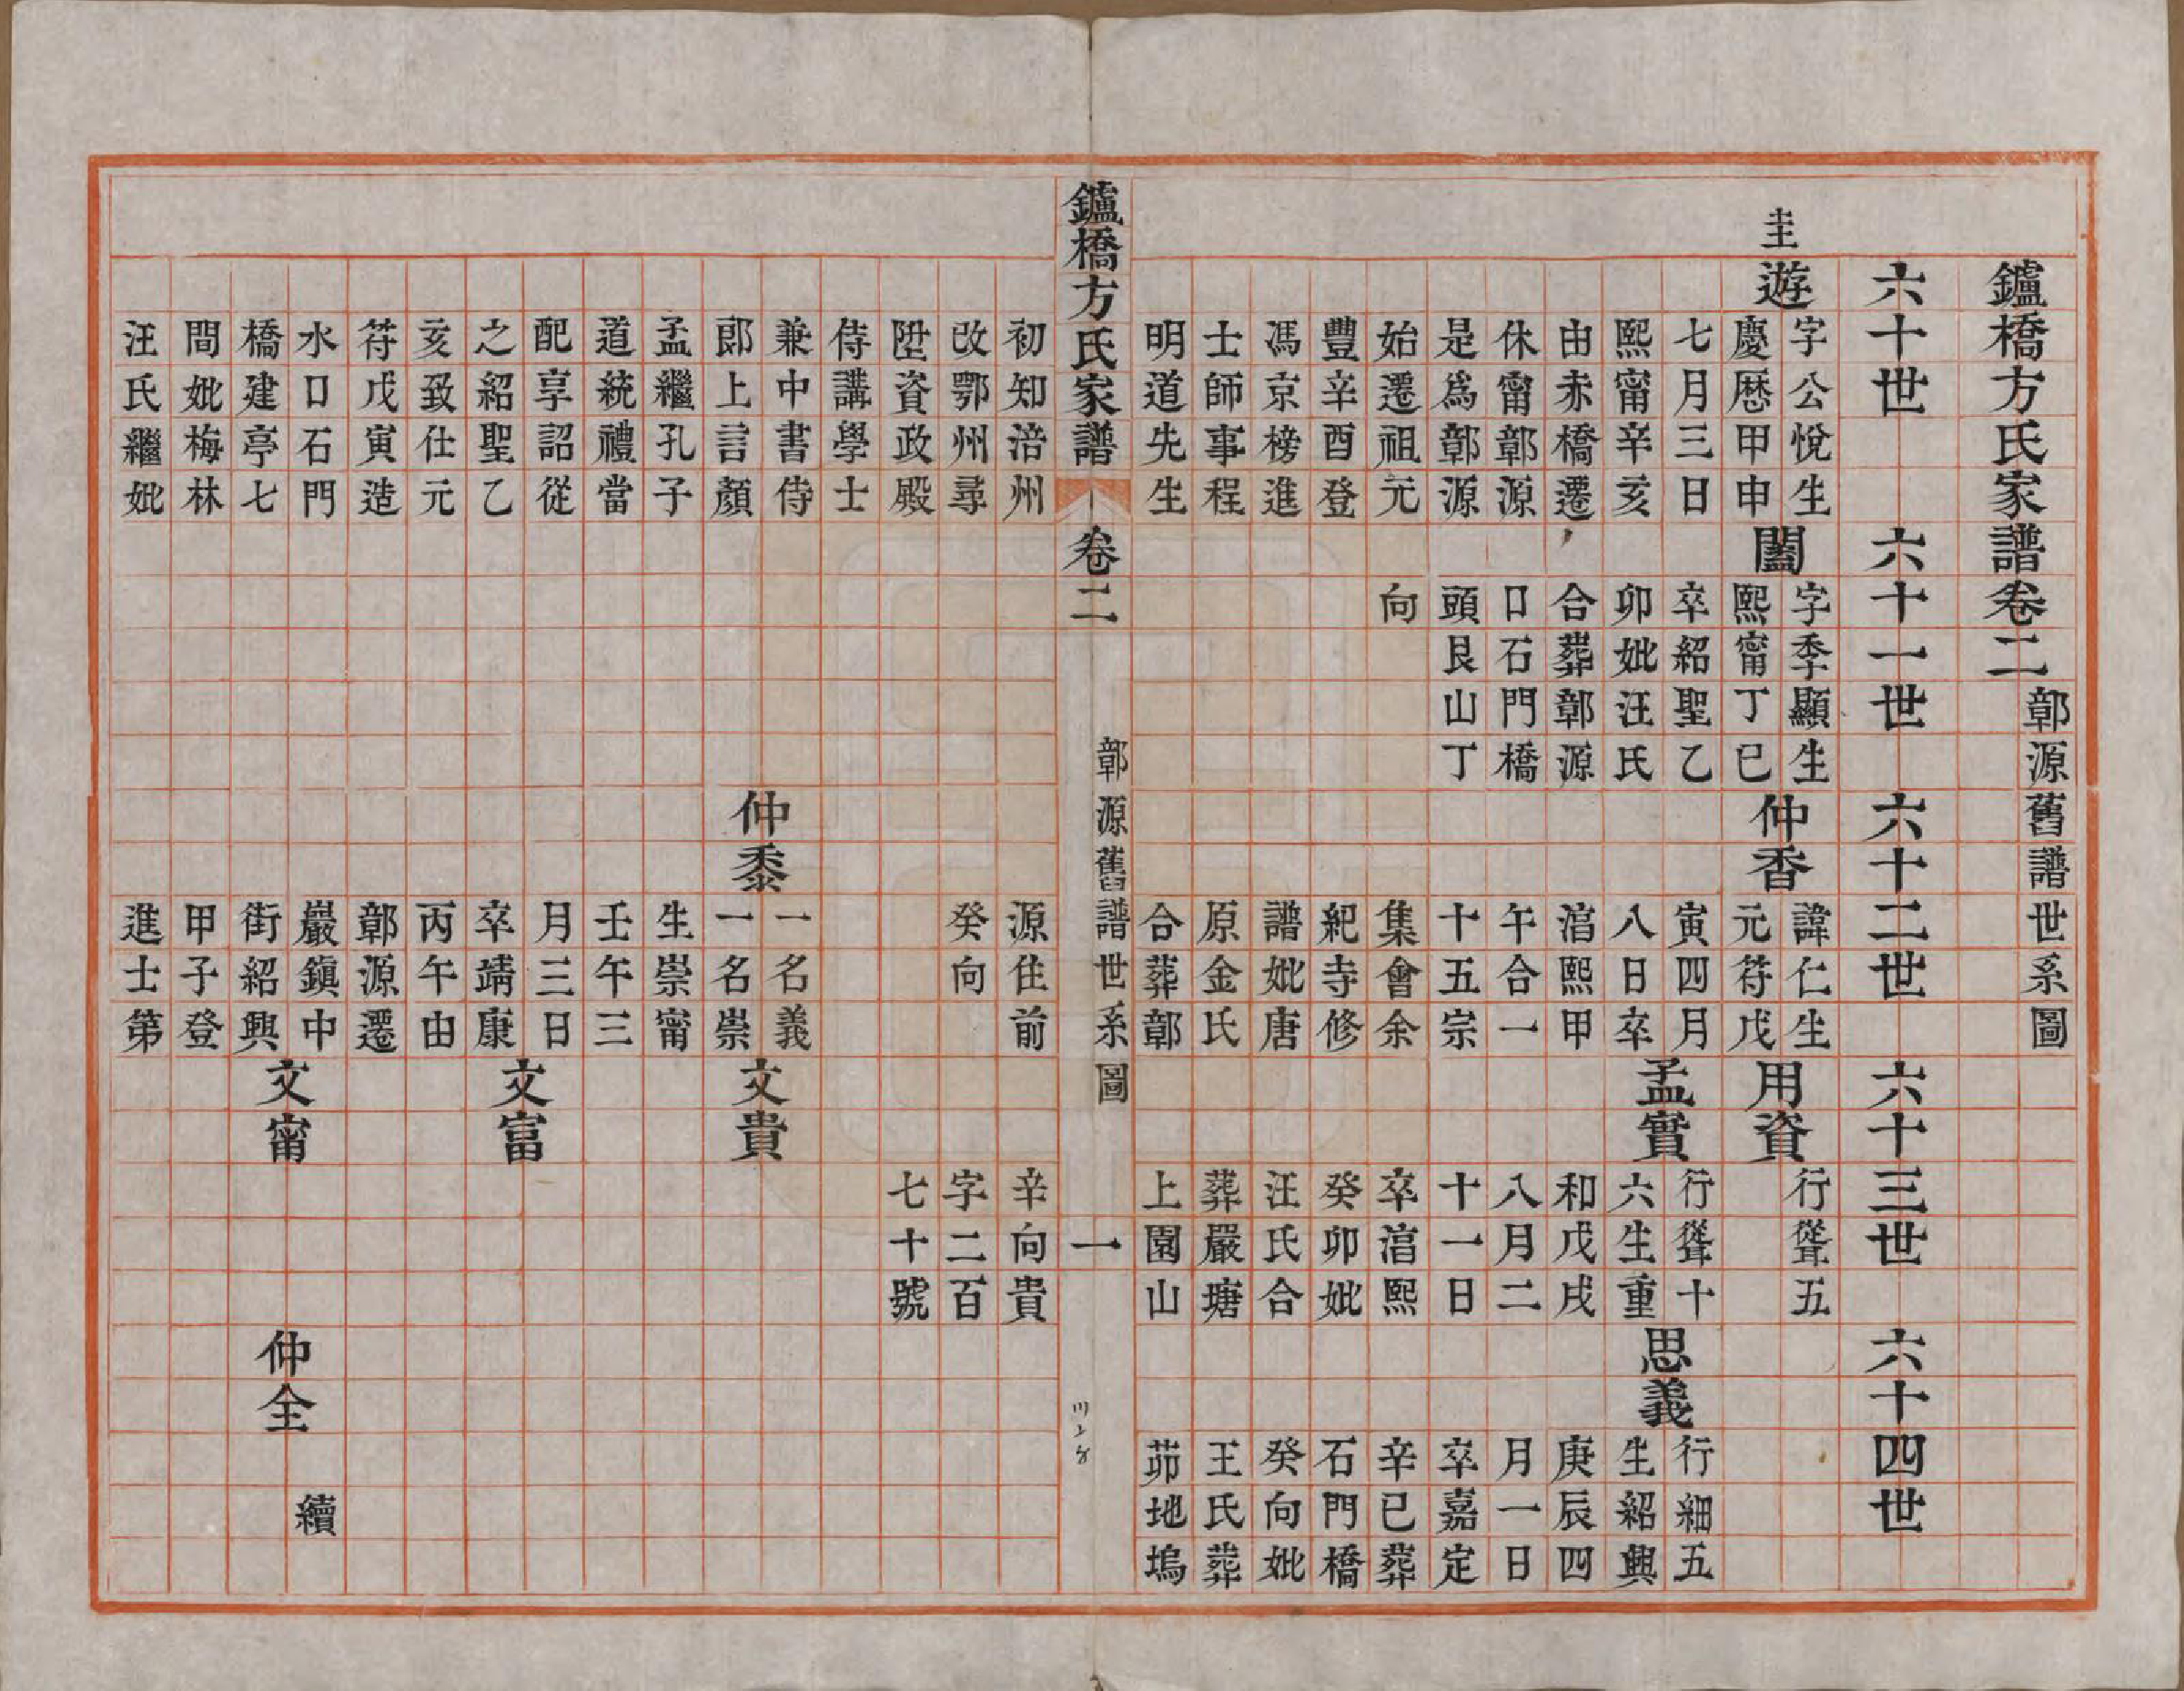 鑪橋方氏家譜卷二 鄣源舊譜世系圖
六十世 六十一世 六十二世 六十三世 六十四世
圭
遊
字公悅生
慶厯甲申
七月三日
熙甯辛亥
由赤橋遷
休甯鄣源
是爲鄣源
始遷祖元
豐辛酉登
馮京榜進
士師事程
明道先生
初知涪州
改鄂州尋
陞資政殿
侍講學士
兼中書侍
郎上言顏
孟繼孔子
道統禮當
配享詔從
之紹聖乙
亥致仕元
符戊寅造
水口石門
橋建亭七
間妣梅林
汪氏繼妣
闔
字季顯生
熙甯丁巳
卒紹聖乙
卯妣汪氏
合葬鄣源
口石門橋
頭艮山丁
向
仲香
諱仁生
元符戊
寅四月
八日卒
淊熙甲
午合一
十五宗
集會余
紀寺修
譜妣唐
原金氏
合葬鄣
源住前
癸向
仲黍
一名義
一名崇
生崇甯
壬午三
月三日
卒靖康
丙午由
鄣源遷
巖鎮中
街紹興
甲子登
進士第
用資
行聳五
孟實
行聳十
六生重
和戊戌
八月二
十一日
卒淊熙
癸卯妣
汪氏合
葬嚴塘
上園山
辛向貴
字二百
七十號
文貴
文富
文甯
思義
行細五
生紹興
庚辰四
月一日
卒嘉定
辛巳葬
石門橋
癸向妣
王氏葬
茆地塢
仲全
續
鑪橋方氏家譜 卷二 鄣源舊譜世系圖 一